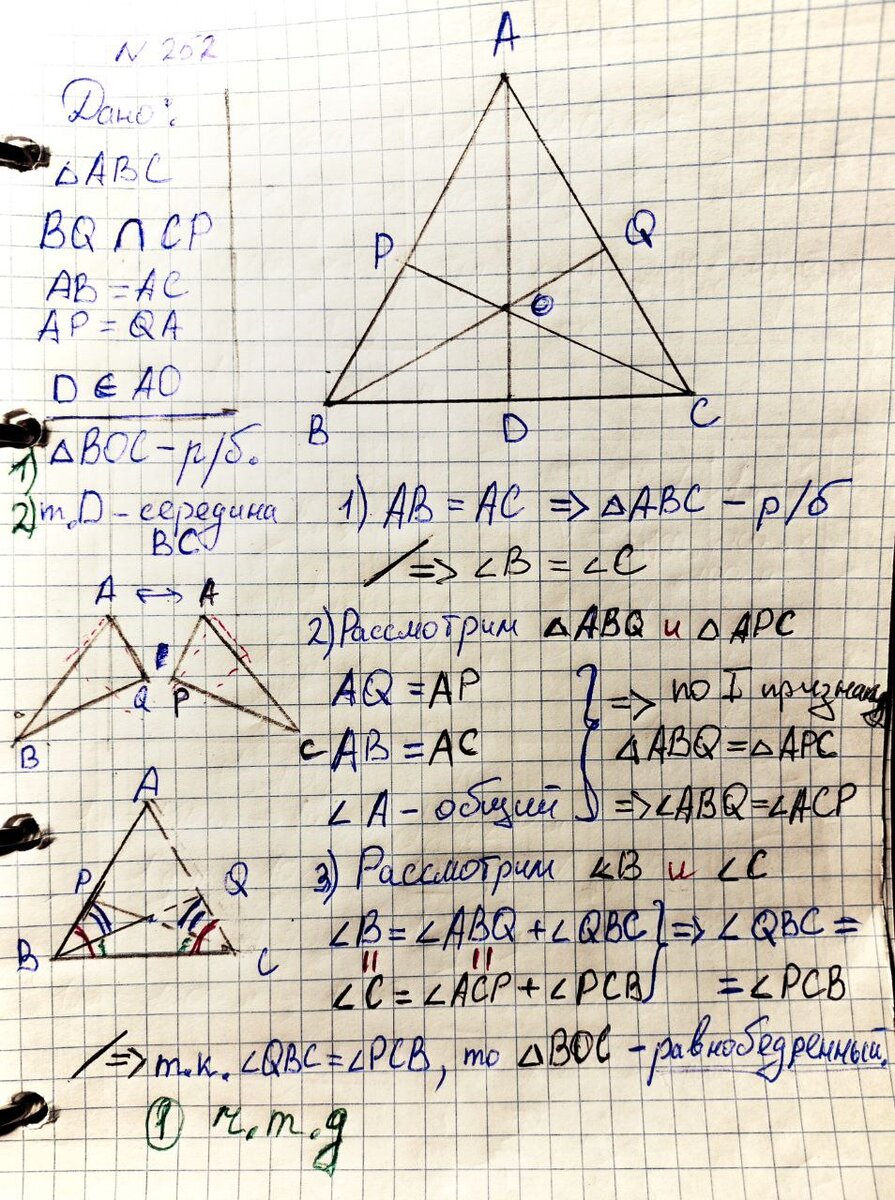 N 252
Дано:
△ABC
BQ ∩ CP
AB = AC
AP = QA
D ∈ AO
1) △BOC – р/б.
2) т.D – середина
BC
A
P
Q
O
B
D
C
A ↔ A
Q P
B
C
A
P
Q
B
C
1) AB = AC => △ABC – р/б
=> ∠B = ∠C
2) Рассмотрим △ABQ и △APC
AQ = AP
AB = AC
∠A – общий
=> по I признаку
△ABQ = △APC
=> ∠ABQ = ∠ACP
3) Рассмотрим ∠B и ∠C
∠B = ∠ABQ + ∠QBC } => ∠QBC =
∠C = ∠ACP + ∠PCB = ∠PCB
=> т.к. ∠QBC = ∠PCB, то △BOC – равнобедренный.
1 ч.т.д